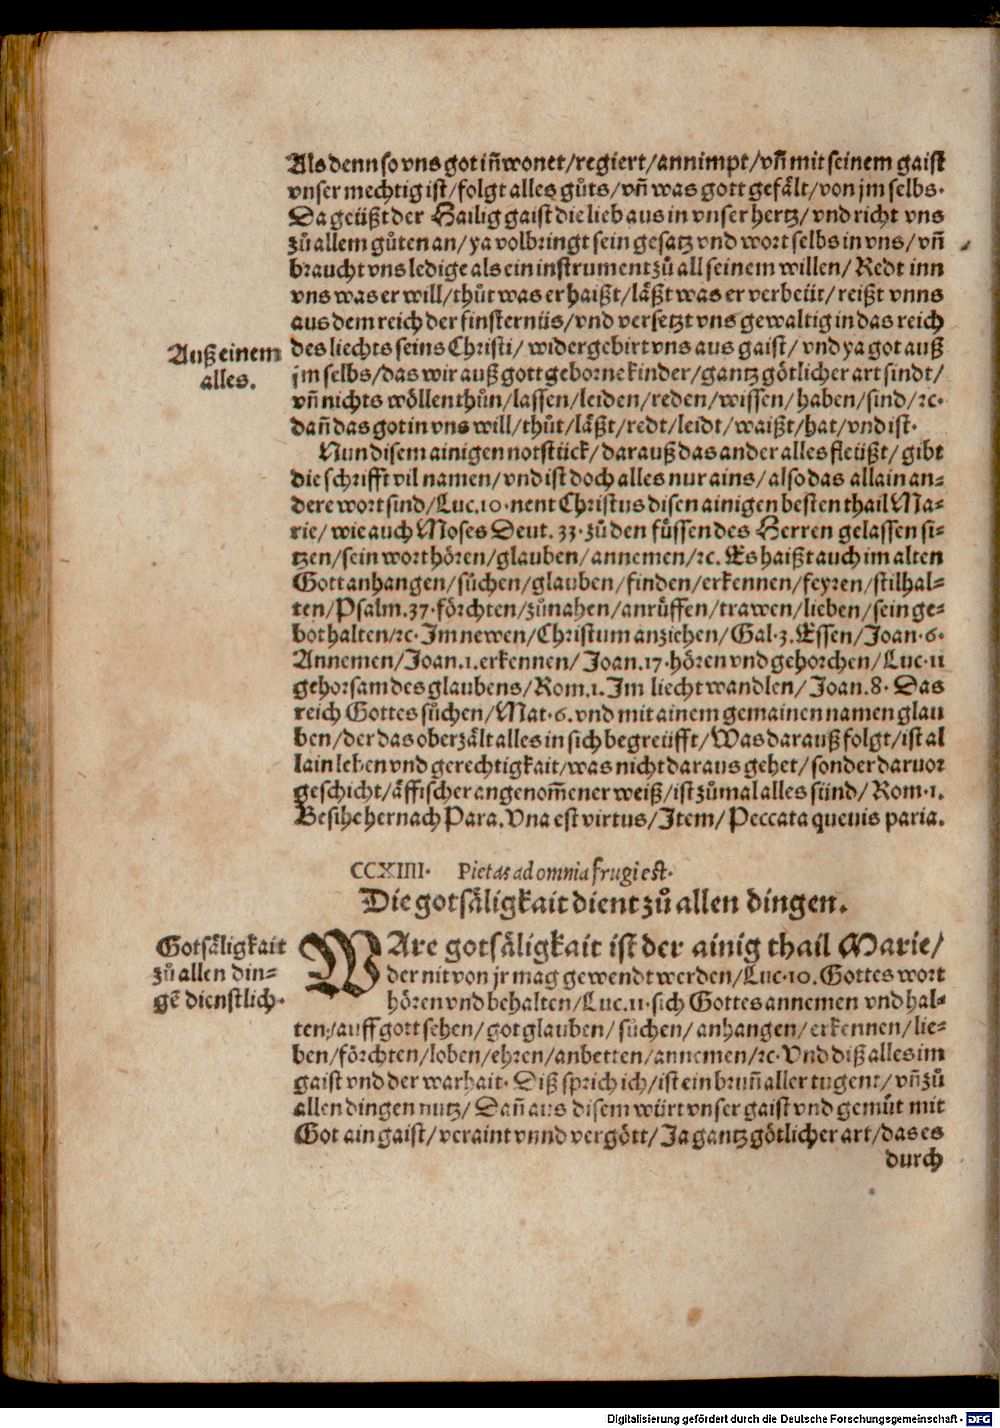 Als denn so vns got iñ wonet/ regiert/ annimpt/ vñ mit seinem gaist
vnser mechtig ist/ folgt alles gůts/ vñ was gott gefält/ von jm selbs.
Da geüßt der Hailig gaist die lieb aus in vnser hertz/ vnd richt vns
zů allem gůten an/ ya volbringt sein gesatz vnd wort selbs in vns/ vñ
braucht vns ledige als ein instrument zů all seinem willen/ Redt inn
vns was er will/ thůt was er haißt/ läßt was er verbeüt/ reißt vnns
aus dem reich der finsternüs/ vnd versetzt vns gewaltig in das reich
Auß einem
alles.
des liechts seins Christi/ widergebirt vns aus gaist/ vnd ya got auß
jm selbs/ das wir auß gott geborne kinder/ gantz götlicher art sindt/
vñ nichts wöllen thůn/ lassen/ leiden/ reden/ wissen/ haben/ sind/ ꝛc.
dañ das got in vns will/ thůt/ läßt/ redt/ leidt/ waißt/ hat/ vnd ist.
Nun disem ainigen notstück/ darauß das ander alles fleüßt/ gibt
die schrifft vil namen/ vnd ist doch alles nur ains/ also das allain an=
dere wort sind/ Luc. 10. nent Christus disen ainigen besten thail Ma=
rie/ wie auch Moses Deut. 33. zů den füssen des Herren gelassen si=
tzen/ sein wort hören/ glauben/ annemen/ ꝛc. Es haißt auch im alten
Gott anhangen/ sůchen/ glauben/ finden/ erkennen/ feyren/ stilhal=
ten/ Psalm. 37. förchten/ zůnahen/ anrůffen/ trawen/ lieben/ sein ge=
bot halten/ ꝛc. Im newen/ Christum anziehen/ Gal. 3. Essen/ Joan. 6.
Annemen/ Joan. 1. erkennen/ Joan. 17. hören vnd gehorchen/ Luc. 11
gehorsam des glaubens/ Rom. 1. Im liecht wandlen/ Joan. 8. Das
reich Gottes sůchen/ Mat. 6. vnd mit ainem gemainen namen glau
ben/ der das oberzält alles in sich begreüfft/ Was darauß folgt/ ist al
lain leben vnd gerechtigkait/ was nicht daraus gehet/ sonder daruor
geschicht/ äffischer angenom̃ener weiß/ ist zůmal alles sünd/ Rom. 1.
Besihe hernach Para. Vna est virtus/ Item/ Peccata queuis paria.
CCXIIII. Pietas ad omnia frugi est.
Die gotsäligkait dient zů allen dingen.
Gotsäligkait
zů allen din=
gẽ dienstlich.
WAre gotsäligkait ist der ainig thail Marie/
der nit von jr mag gewendt werden/ Luc. 10. Gottes wort
hören vnd behalten/ Luc. 11. sich Gottes annemen vnd hal=
ten/ auff gott sehen/ got glauben/ sůchen/ anhangen/ erkennen/ lie=
ben/ förchten/ loben/ ehren/ anbetten/ annemen/ ꝛc. Vnd diß alles im
gaist vnd der warhait. Diß sprich ich/ ist ein brun̄ aller tugent/ vñ zů
allen dingen nutz/ Dañ aus disem würt vnser gaist vnd gemůt mit
Got ain gaist/ veraint vnnd vergött/ Ja gantz götlicher art/ das es
durch
Digitalisierung gefördert durch die Deutsche Forschungsgemeinschaft - DFG